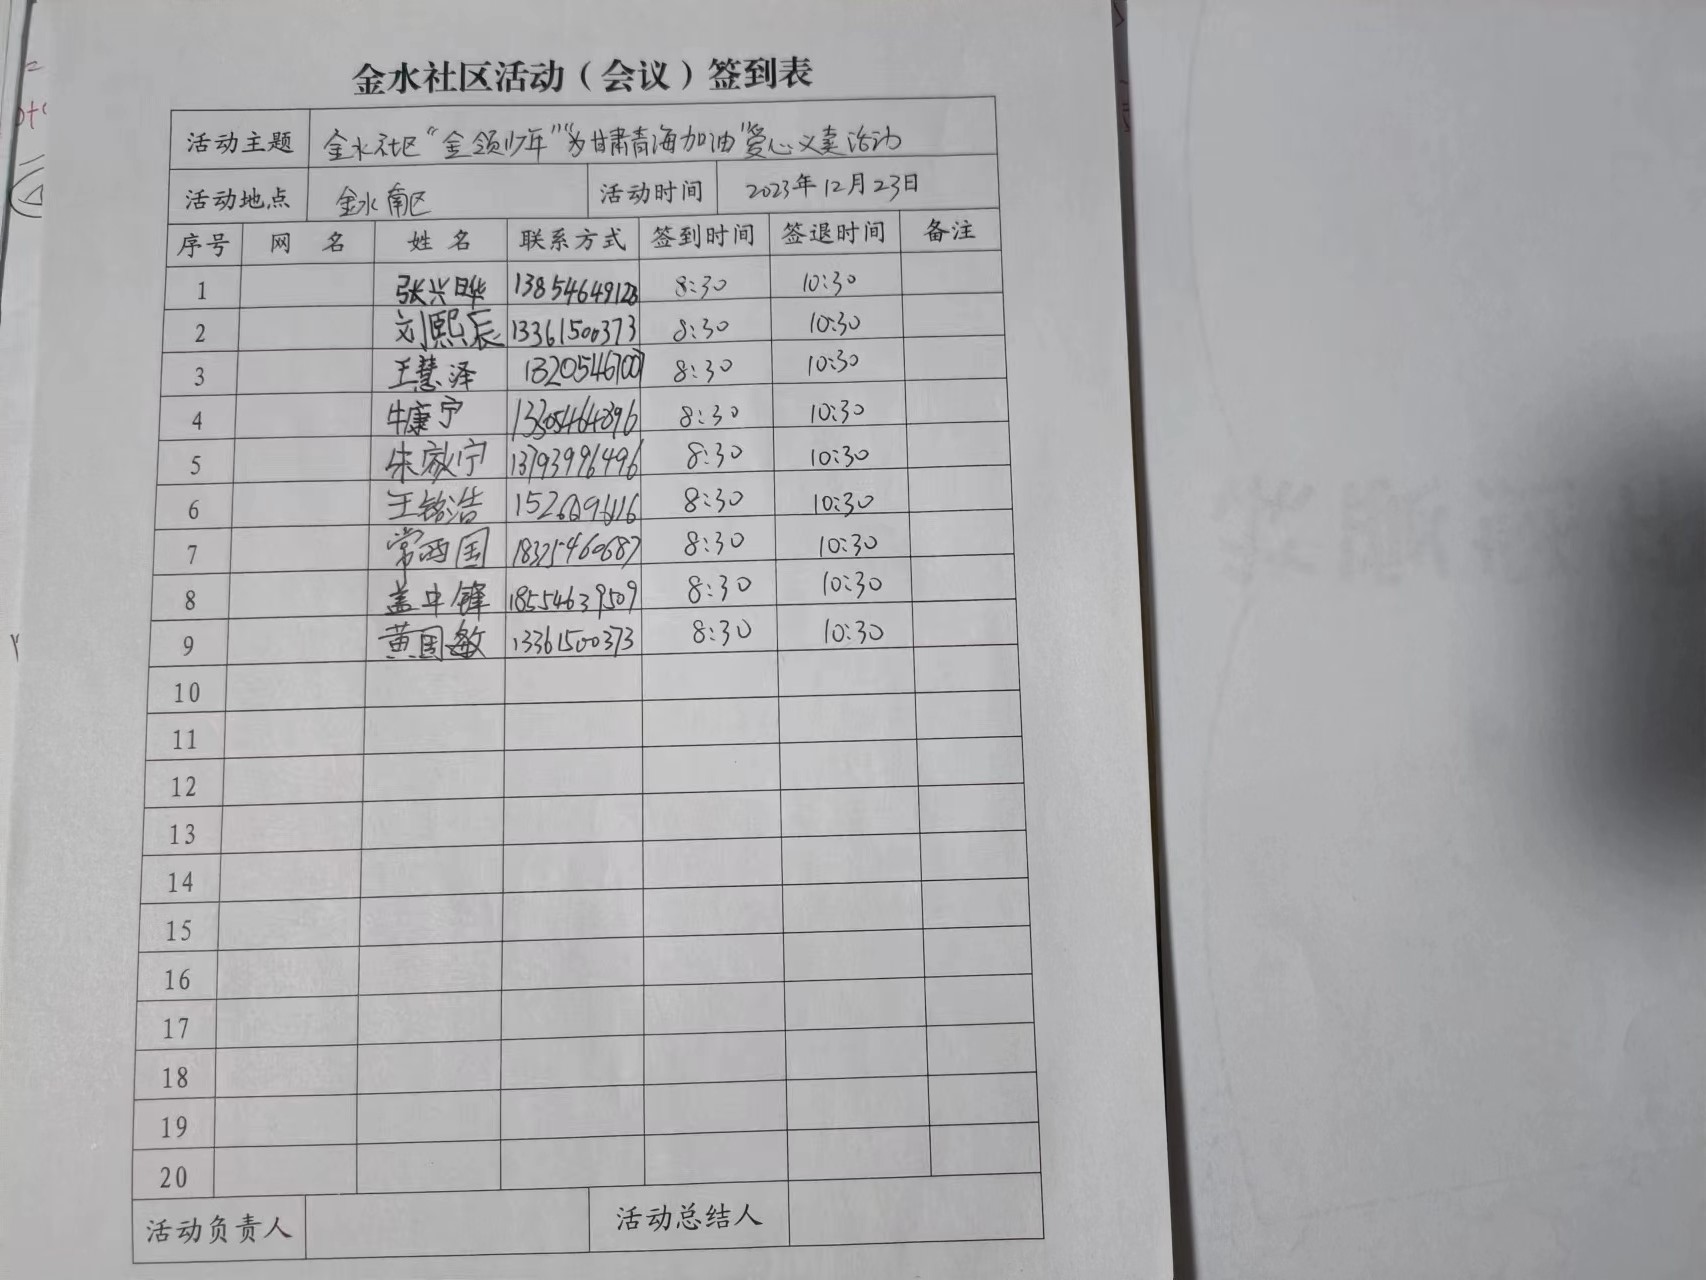 金水社区活动（会议）签到表
活动主题 金水社区“金领少年”“为甘肃青海加油”爱心义卖活动
活动地点 金水南区 活动时间 2023年12月23日
序号 网 名 姓 名 联系方式 签到时间 签退时间 备注
1 张兴晔 13854649128 8:30 10:30
2 刘熙辰 13361500373 8:30 10:30
3 王慧泽 13205467007 8:30 10:30
4 牛康宁 13305464896 8:30 10:30
5 朱家宁 13793996496 8:30 10:30
6 王铭浩 8:30 10:30
7 常西国 18325460687 8:30 10:30
8 盖中锋 18554639509 8:30 10:30
9 黄国敏 13361500373 8:30 10:30
10
11
12
13
14
15
16
17
18
19
20
活动负责人 活动总结人